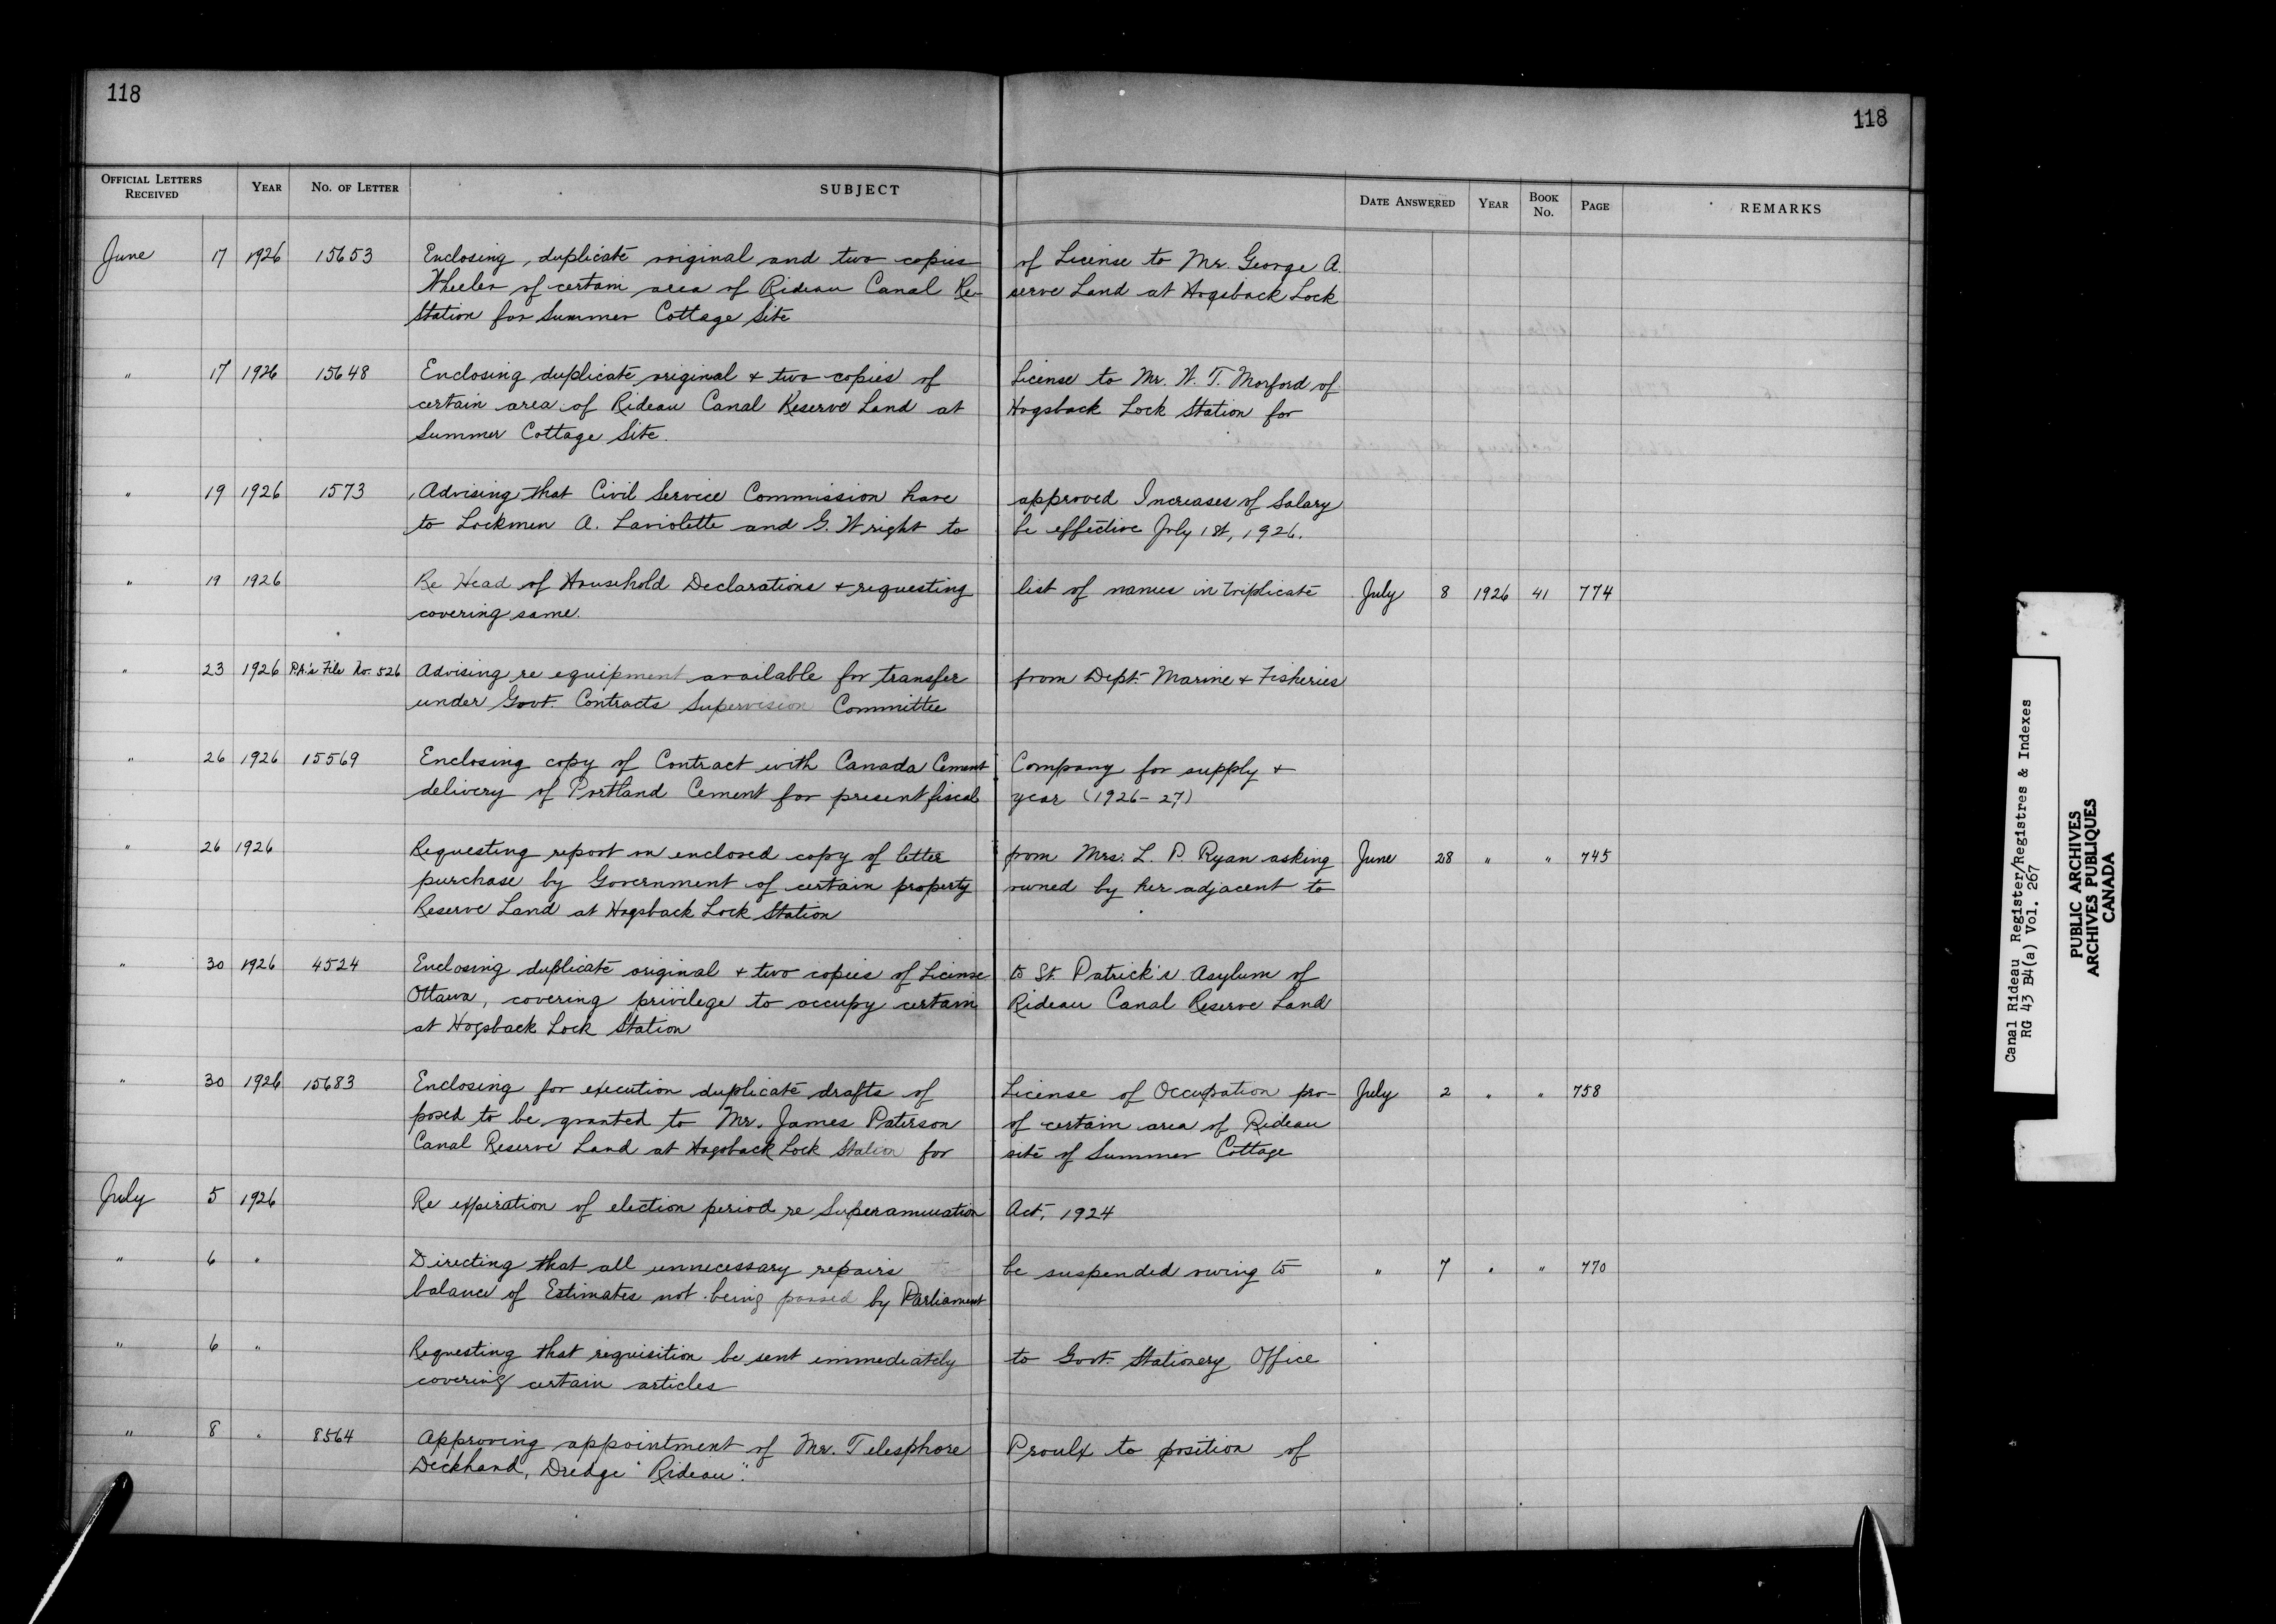 118
118
OFFICIAL LETTERS RECEIVED YEAR NO. OF LETTER SUBJECT DATE ANSWERED YEAR BOOK No. PAGE REMARKS
June 17 1926 15653 Enclosing duplicate original and two copies of License to Mr. George A.
Wheeler of certain area of Rideau Canal Re- serve Land at Hogsback Lock
Station for Summer Cottage Site
" 17 1926 15648 Enclosing duplicate original & two copies of License to Mr. W. T. Morford of
certain area of Rideau Canal Reserve Land at Hogsback Lock Station for
Summer Cottage Site.
" 19 1926 1573 Advising that Civil Service Commission have approved Increases of Salary
to Lockmen A. Laviolette and G. Wright to be effective July 1st, 1926.
" 19 1926 Re Head of Household Declarations & requesting list of names in triplicate July 8 1926 41 774
covering same.
" 23 1926 P.A.'s File No. 526 Advising re equipment available for transfer from Dept. Marine & Fisheries
under Govt. Contracts Supervision Committee
" 26 1926 15569 Enclosing copy of Contract with Canada Cement Company for supply &
delivery of Portland Cement for present fiscal year (1926-27)
" 26 1926 Requesting report on enclosed copy of letter from Mrs. L. P. Ryan asking June 28 " " 745
purchase by Government of certain property owned by her adjacent to
Reserve Land at Hogsback Lock Station
" 30 1926 4524 Enclosing duplicate original & two copies of License to St. Patrick's Asylum of
Ottawa, covering privilege to occupy certain Rideau Canal Reserve Land
at Hogsback Lock Station
" 30 1926 15683 Enclosing for execution duplicate drafts of License of Occupation pro- July 2 " " 758
posed to be granted to Mr. James Paterson of certain area of Rideau
Canal Reserve Land at Hogsback Lock Station for site of Summer Cottage
July 5 1926 Re expiration of election period re Superannuation Act, 1924
" 6 " Directing that all unnecessary repairs be suspended owing to " 7 " " 770
balance of Estimates not being passed by Parliament
" 6 " Requesting that requisition be sent immediately to Govt. Stationery Office
covering certain articles
" 8 " 8564 Approving appointment of Mr. Telesphore Proulx to position of
Deckhand, Dredge "Rideau".
Canal Rideau Register/Registres & Indexes
RG 43 B4(a) Vol. 267
PUBLIC ARCHIVES
ARCHIVES PUBLIQUES
CANADA